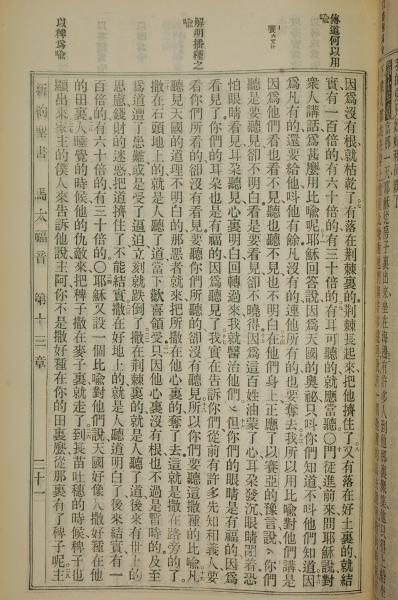 傳道何以用
喻
賽六又廿
解明播種之
喻
以稗爲喻
因爲沒有根就枯乾了有落在荆棘裏的荆棘長起來把他擠住了又有落在好土裏的就結
實有一百倍的有六十倍的有三十倍的有耳可聽的就應當聽〇門徒進前來問耶穌說對
衆人講話爲甚麼用比喻呢耶穌回答說因爲天國的奧祕只呌你們知道不呌他們知道因
爲凡有的還要給他呌他有餘凡沒有的連他所有的也要奪去我所以用比喻對他們講是
因爲他們看也看不見聽也聽不見也不明白在他們身上正應了以賽亞的豫言說你們
聽是要聽見卻不明白看是要看見卻不曉得因爲這百姓油蒙了心耳朵發沉眼睛閉着恐
怕眼睛看見耳朵聽見心裏明白回轉過來我就醫治他們但你們的眼睛是有福的因爲
看見了你們的耳朵也是有福的因爲聽見了我實在告訴你們從前有許多先知和義人要
看你們所看的卻沒有看見要聽你們所聽的卻沒有聽見所以你們要聽這撒種的比喻凡
聽見天國的道理不明白的那惡者就來把所撒在他心裏的奪了去這就是撒在路旁的了
撒在石頭地上的就是人聽了道當下歡喜領受只因他心裏沒有根也不過是暫時的及至
爲道遭了患難或是受了逼迫立刻就跌倒了撒在荆棘裏的就是人聽了道後來有世上的
思慮錢財的迷惑把道擠住了不能結實撒在好地上的就是人聽道明白了後來結實有一
百倍的有六十倍的有三十倍的〇耶穌又設一個比喻對他們說天國好像人撒好種在他
的田裏人睡覺的時候他的仇敵來把稗子撒在麥子裏就走了到長苗吐穗的時候稗子也
顯出來家主的僕人來告訴他說主阿你不是撒好種在你的田裏麼從那裏有了稗子呢主
新約聖書 馬太福音 第十三章 二十一